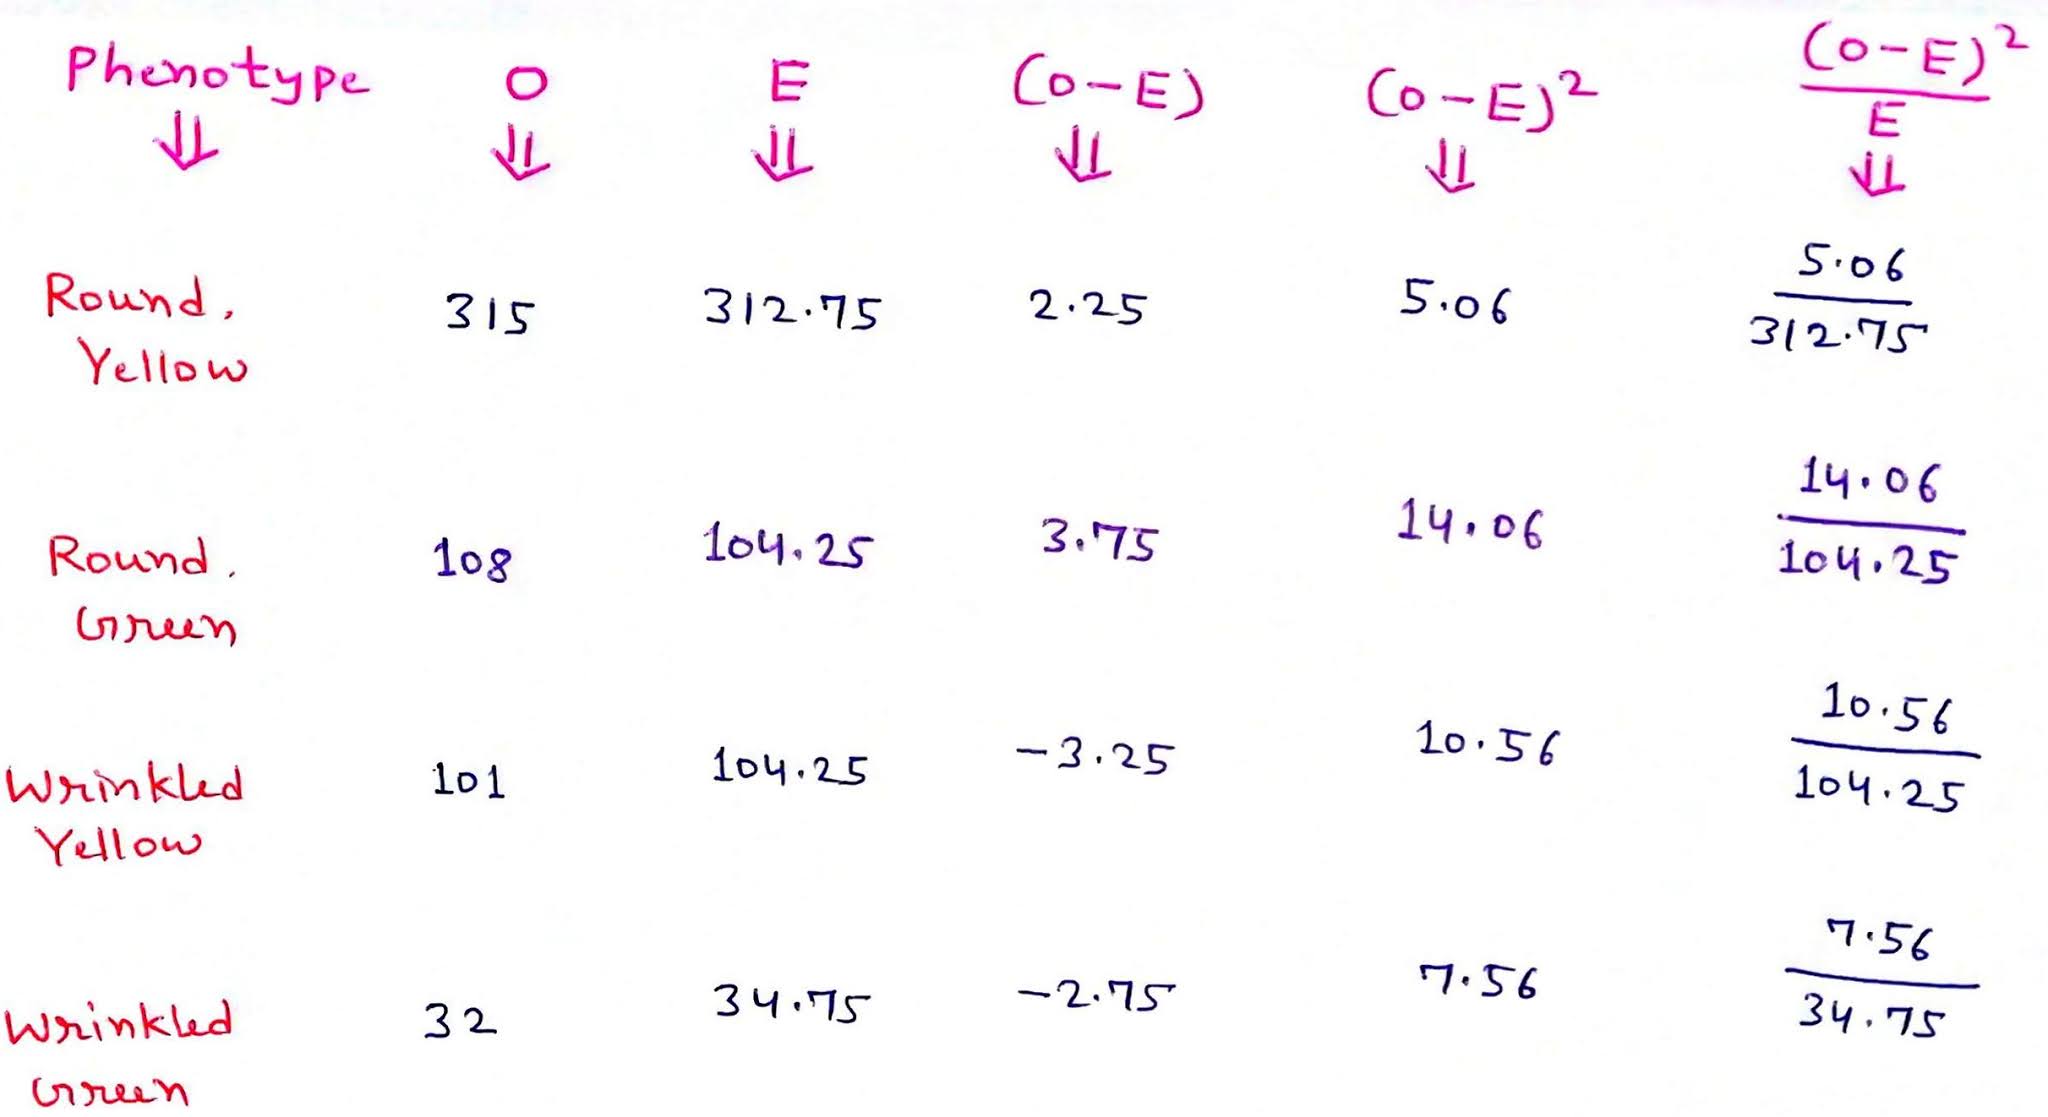 Phenotype O E (O-E) (O-E)² (O-E)²/E
⇓ ⇓ ⇓ ⇓ ⇓ ⇓
Round, 315 312.75 2.25 5.06 5.06/312.75
Yellow
Round, 108 104.25 3.75 14.06 14.06/104.25
Green
Wrinkled 101 104.25 -3.25 10.56 10.56/104.25
Yellow
Wrinkled 32 34.75 -2.75 7.56 7.56/34.75
Green